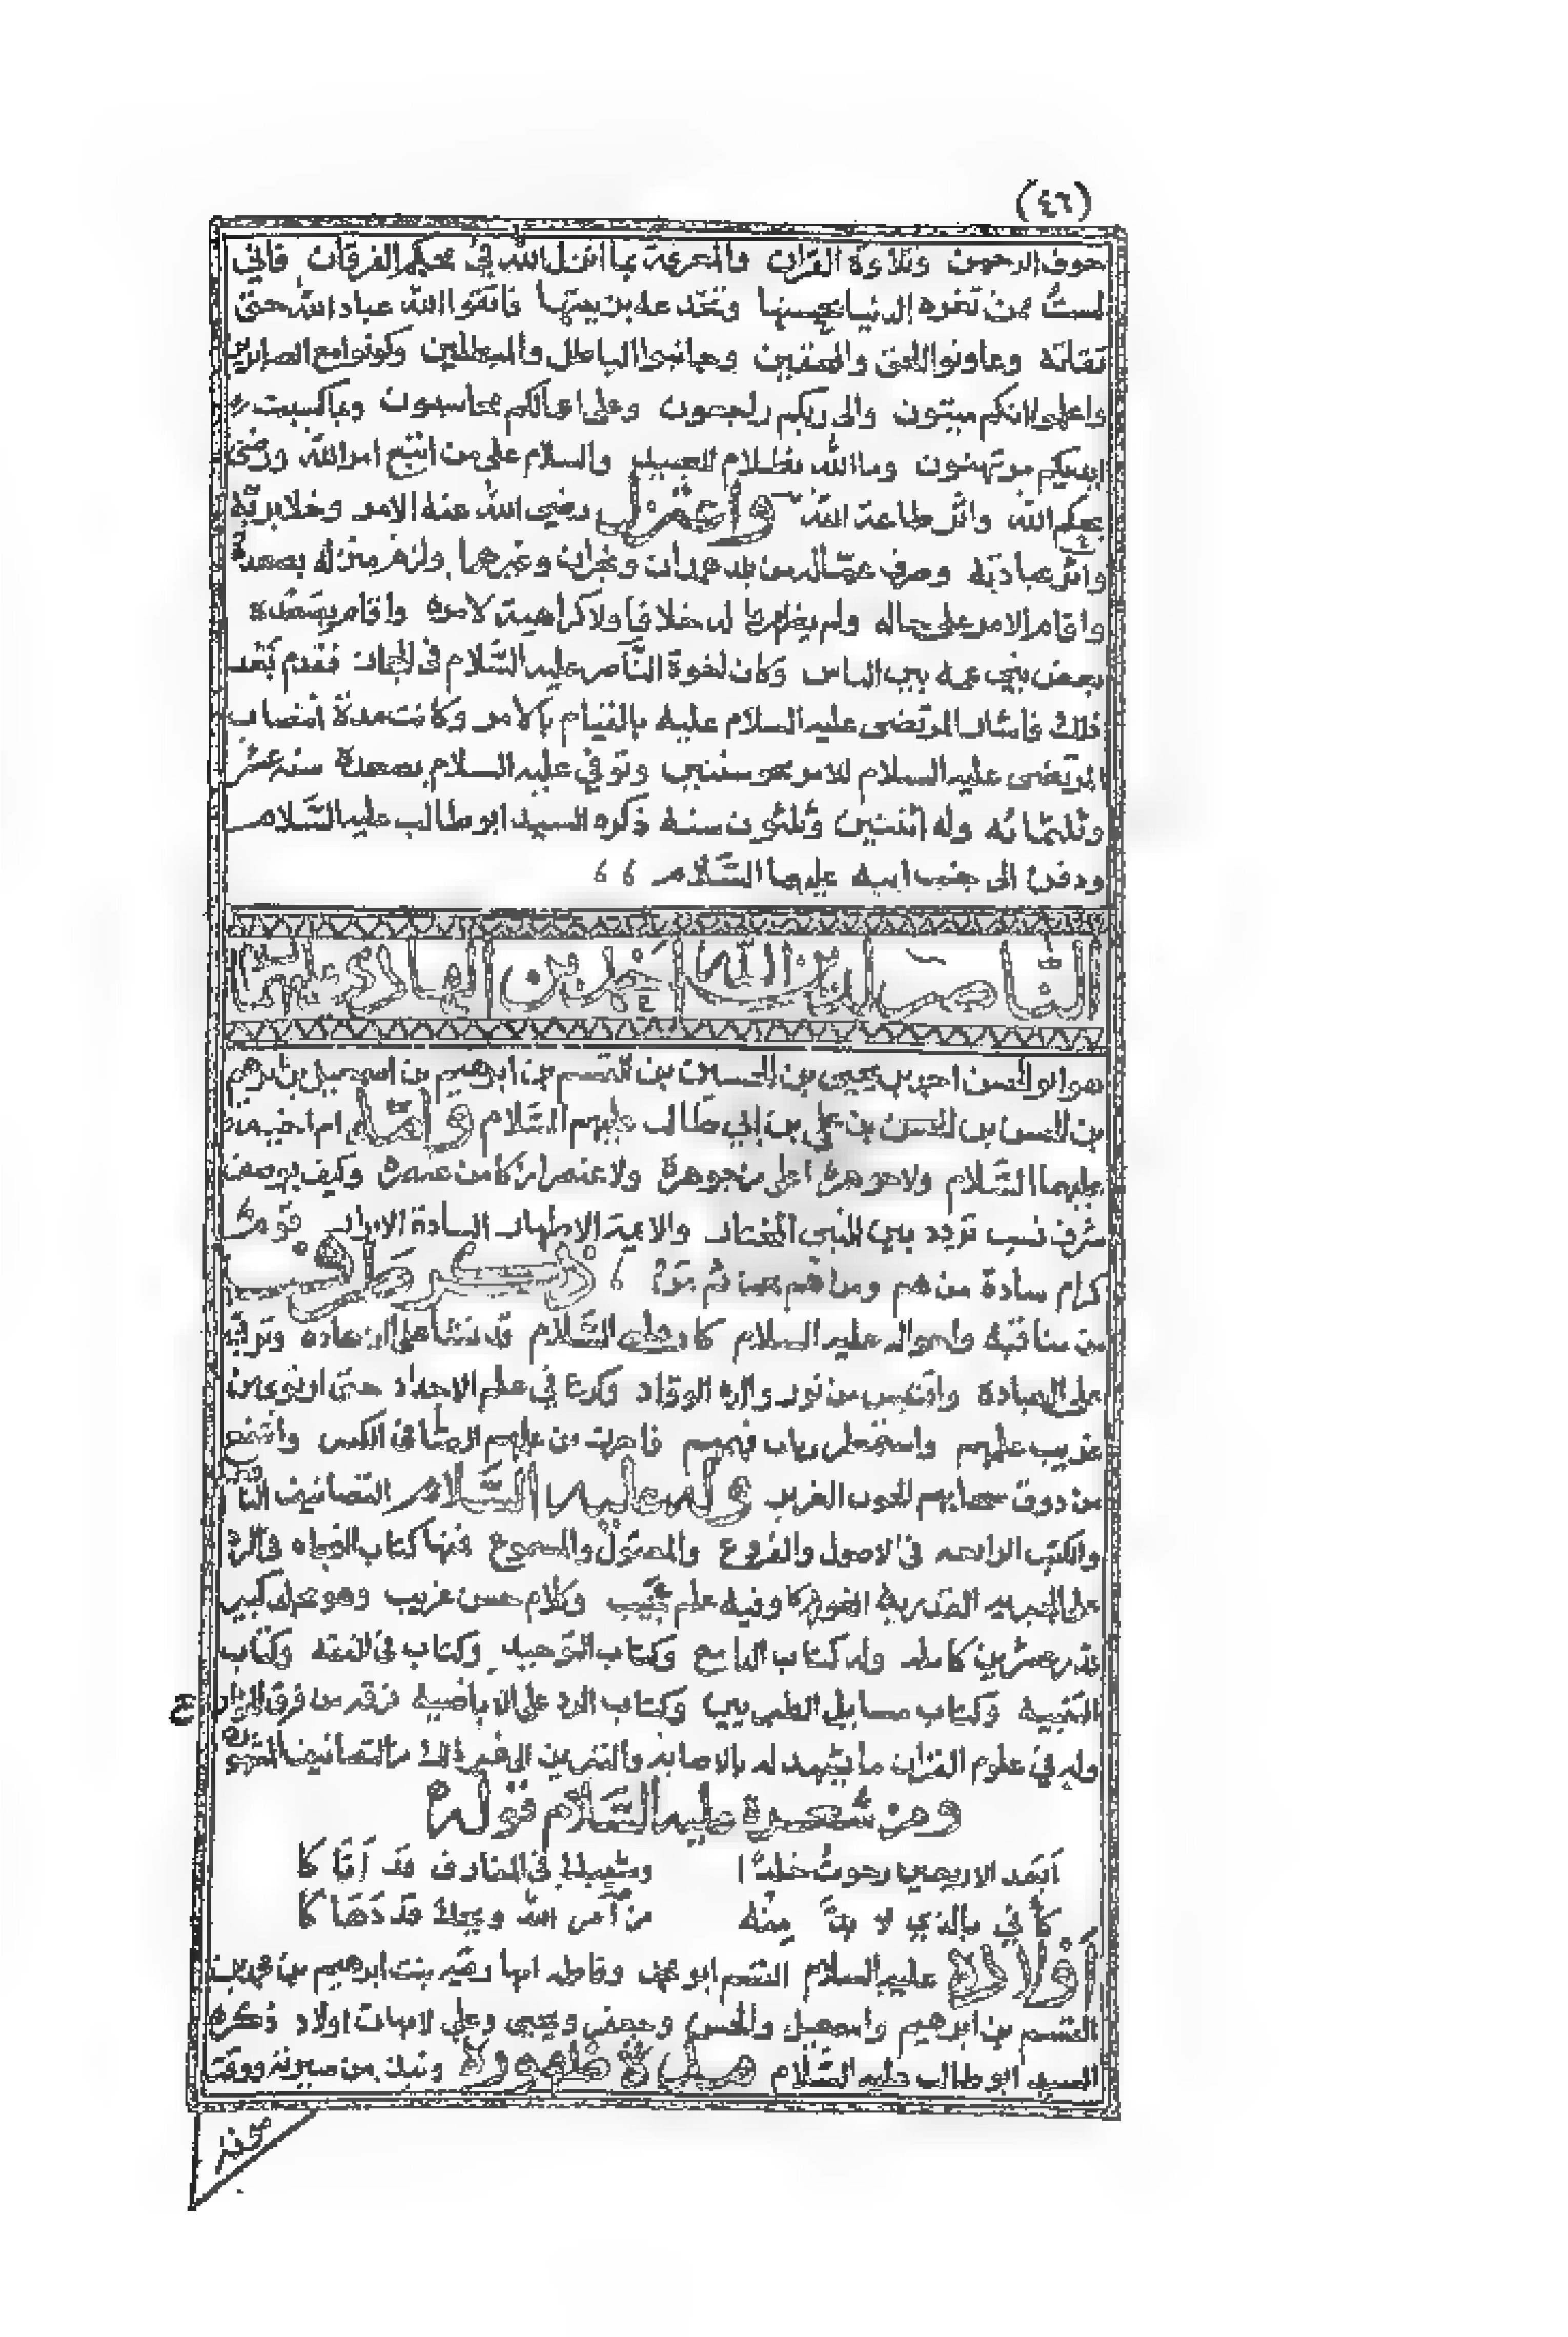 (٤٦)
خوف الرحمن وتلاوة القران والمعرفة بما انزل الله في محكم الفرقان فاني
لست ممن تغره الدنيا بحسنها وتخدعه بزينتها فاتقوا الله عباد الله حق
تقاته وعاونوا الحق والمحقين وجانبوا الباطل والمبطلين وكونوا مع الصابرين
واعلموا انكم ميتون والى ربكم راجعون وعلى اعمالكم محاسبون وبما كسبت
ايديكم مرتهنون وما الله بظلام للعبيد والسلام على من اتبع امر الله ورضي
بحكم الله واثر طاعة الله واعتزل رضي الله عنه الامر وخلا بربه
واثر عبادته وصرف عماله من بلد همدان ونجران وغيرها ولزم منزله بصعدة
واقام الامر على حاله ولم يظهر لهم خلافا ولا كراهية لامره واقام بصعدة
بعض بني عمه بين الناس وكان اخوه الناصر عليه السلام في الحجاز فقدم بعد
ذلك فاشار المرتضى عليه السلام عليه بالقيام بالامر وكانت مدة انتصاب
المرتضى عليه السلام للامر نحو سنتين وتوفي عليه السلام بصعدة سنة عشر
وثلثمائه وله اثنتين وثلثون سنة ذكره السيد ابو طالب عليه السلام
ودفن الى جنب ابيه عليهما السلام
الناصر لدين الله احمد بن الهادي يحيى
هو ابو الحسن احمد بن يحيى بن الحسين بن القسم بن ابرهيم بن اسمعيل بن ابرهيم
بن الحسن بن الحسن بن علي بن ابي طالب عليهم السلام وامه ام اخيه محمد
عليهما السلام ولا جوهرة اعلى من جوهرة ولا عنصر ازكا من عنصره وكيف يوصف
شرف نسب تردد بين النبي المختار والائمة الاطهار السادة الابرار
كرام سادة من هم ومن هم طرف
من مناقبه واحواله عليه السلام كان عليه السلام قد نشا على الزهاده وتربى
على العباده واقتبس من نور والده الوقاد وكرع في علم الاجداد حتى ارتوى من
علمهم واستمطر رباب فهمهم من علمهم الصافي
من سحابهم الغرب وله عليه السلام التصانيف
والكتب الرائعه في الاصول والفروع والمعقول والمسموع فمنها كتاب النجاه في الرد
على المجبره القدريه وفيه علم عجيب وكلام حسن غريب وهو مجلد كبير
ثلثة عشر جزء كامله وله كتاب الدامغ وكتاب التوحيد وكتاب في الفقه وكتاب
التنبيه وكتاب مسايل الطبريين وكتاب الرد على الاباضيه فرقه من فرق الخوارج
وله في علوم القران ما يشهد له بالاصابه الى غير ذلك من التصانيف
ومن شعره عليه السلام قوله
ابعد الاربعين رجوت خلدا وشيبك في المفارق قد اتاكا
كاني بالذي لا بد منه من امر الله ويحك قد دهاكا
اولاده عليه السلام القسم ابو محمد وفاطمه امها رقيه بنت ابرهيم بن محمد بن
القسم بن ابرهيم واسمعيل والحسن وجعفر ويحيى وعلي لامهات اولاد ذكره
السيد ابو طالب عليه السلام صفة ظهوره ونبذ من سيرته ووقت